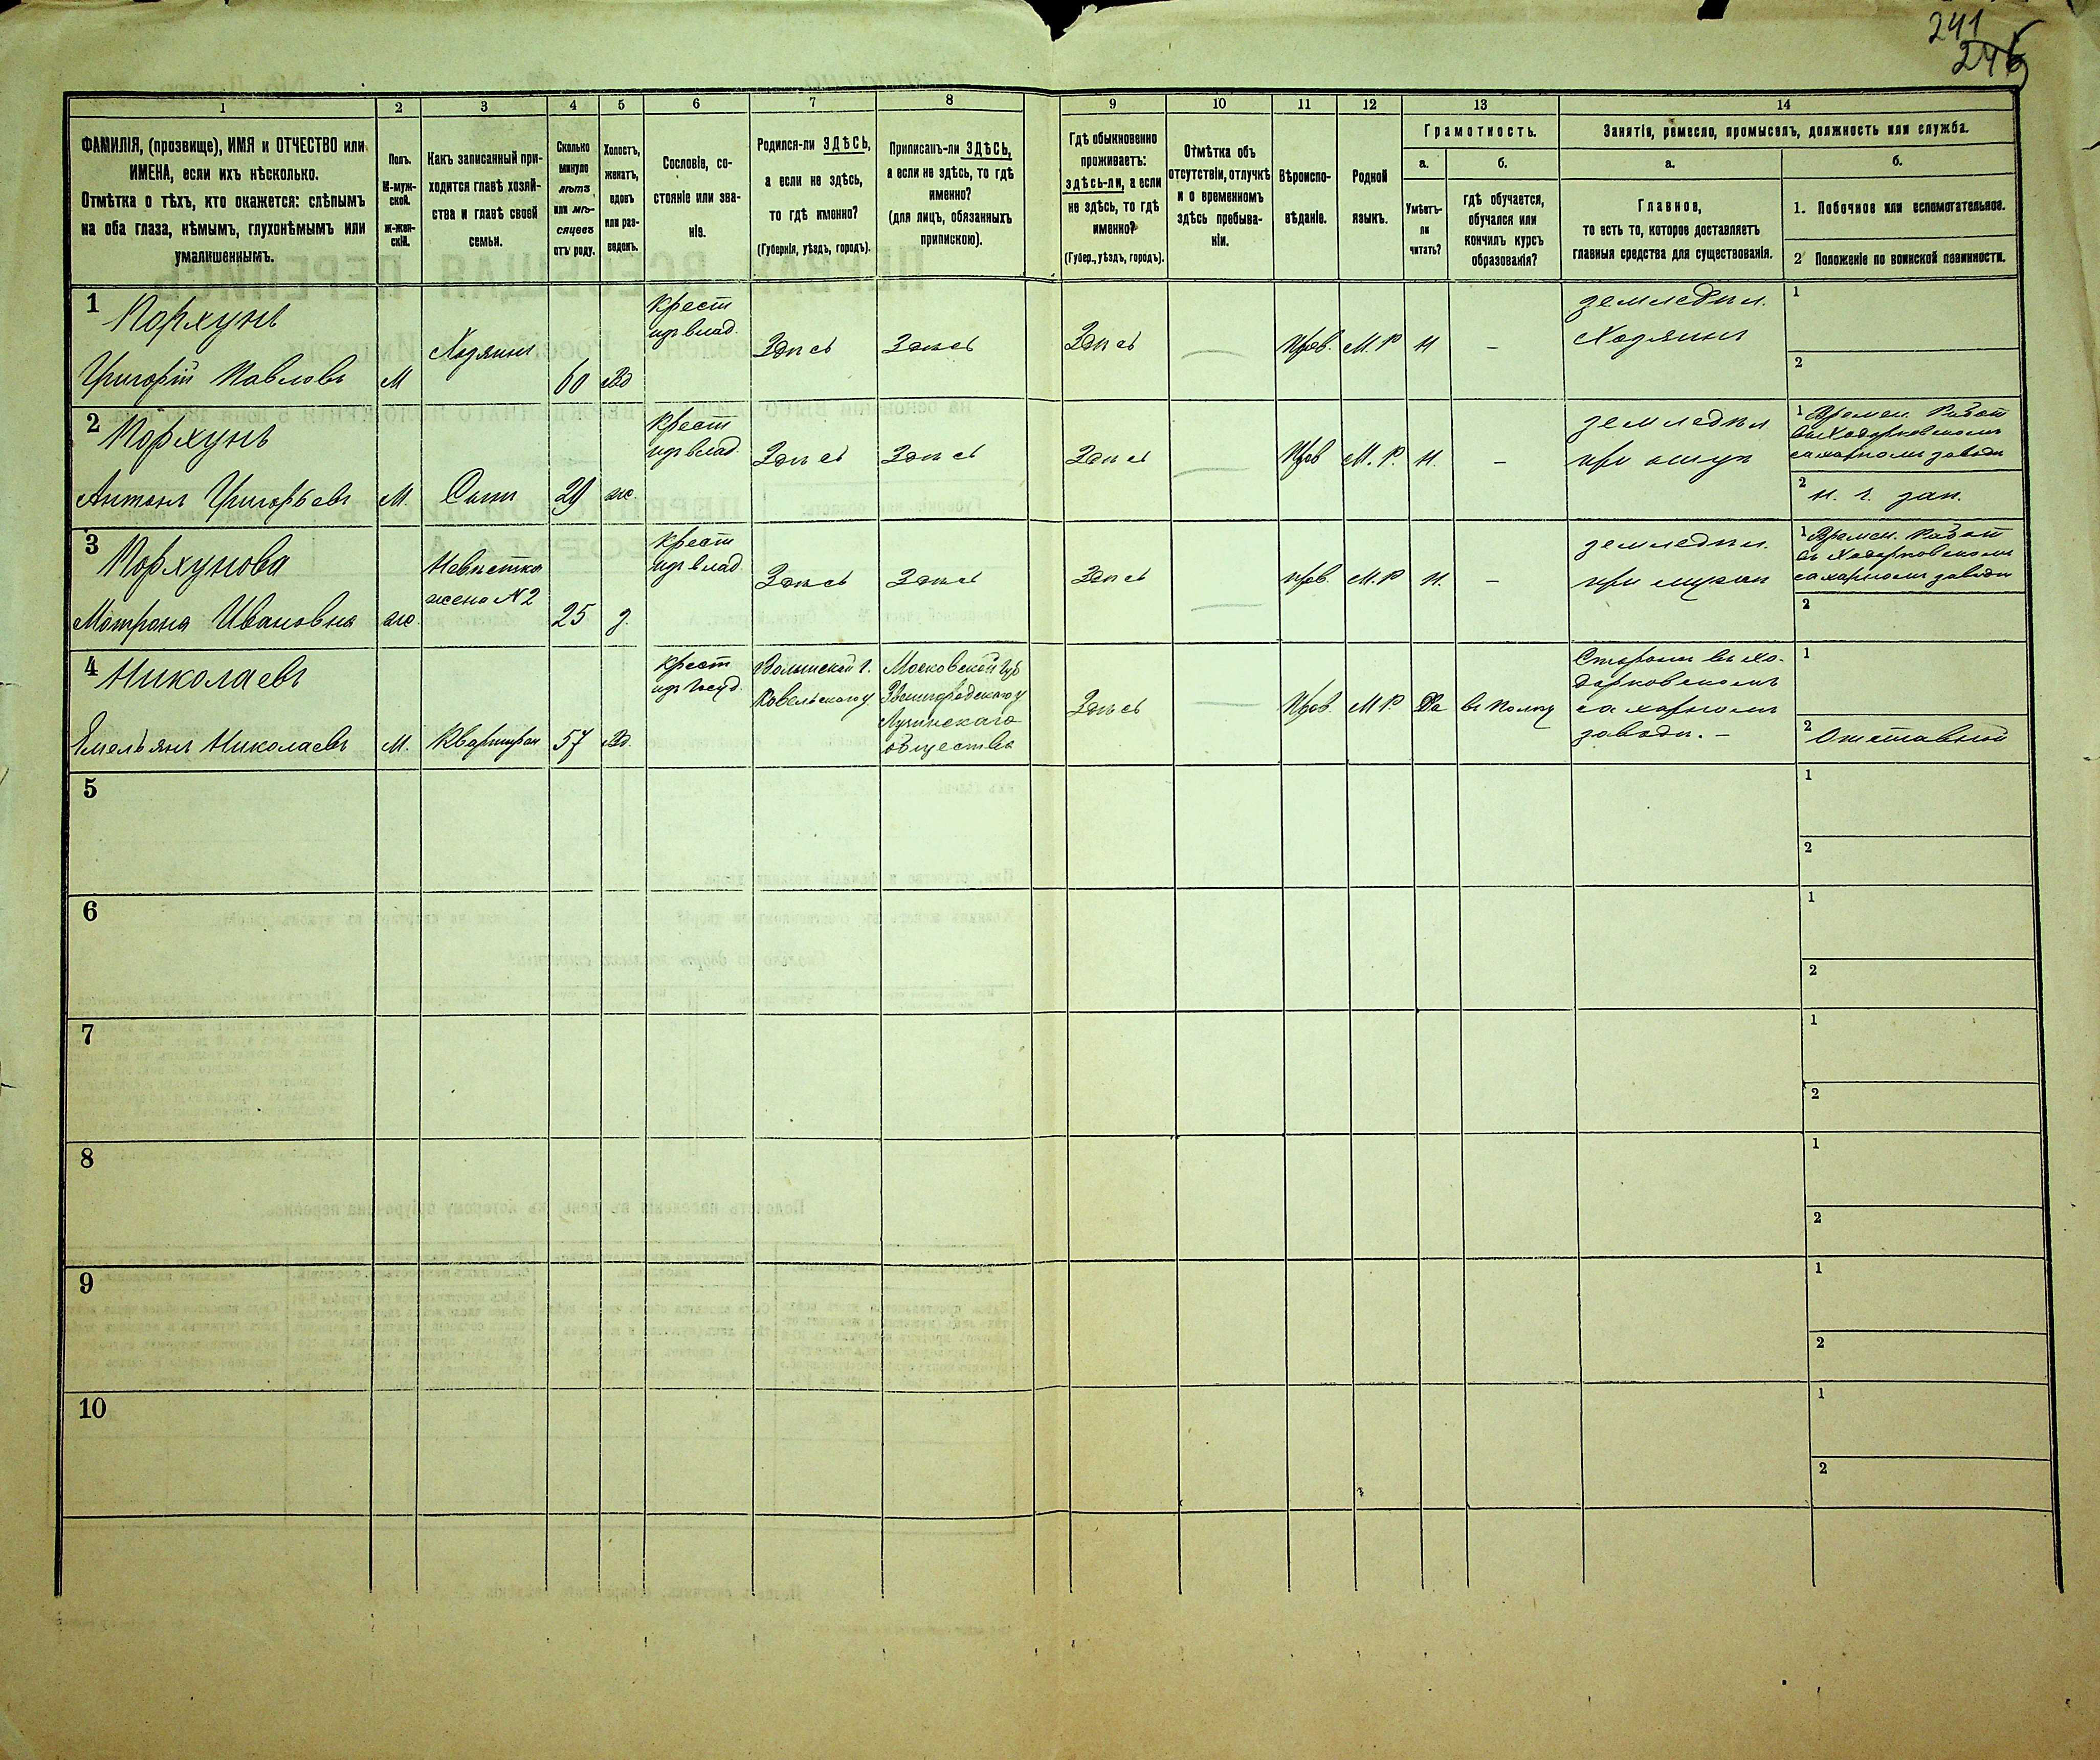 241
246
1 2 3 4 5 6 7 8 9 10 11 12 13 14
ФАМИЛІЯ, (прозвище), ИМЯ и ОТЧЕСТВО или
ИМЕНА, если ихъ нѣсколько.
Отмѣтка о тѣхъ, кто окажется: слѣпымъ
на оба глаза, нѣмымъ, глухонѣмымъ или
умалишеннымъ.
Полъ.
М-муж-
ской.
ж-жен-
скій.
Какъ записанный при-
ходится главѣ хозяй-
ства и главѣ своей
семьи.
Сколько
минуло
лѣтъ
или мѣ-
сяцевъ
отъ роду.
Холостъ,
женатъ,
вдовъ
или раз-
веденъ.
Сословіе, со-
стояніе или зва-
ніе.
Родился-ли ЗДѢСЬ,
а если не здѣсь,
то гдѣ именно?
(Губернія, уѣздъ, городъ).
Приписанъ-ли ЗДѢСЬ,
а если не здѣсь, то гдѣ
именно?
(для лицъ, обязанныхъ
припискою).
Гдѣ обыкновенно
проживаетъ:
здѣсь-ли, а если
не здѣсь, то гдѣ
именно?
(Губер., уѣздъ, городъ).
Отмѣтка объ
отсутствіи, отлучкѣ
и о временномъ
здѣсь пребыва-
ніи.
Вѣроиспо-
вѣданіе.
Родной
языкъ.
Грамотность.
а.
Умѣетъ-
ли
читать?
б.
гдѣ обучается,
обучался или
кончилъ курсъ
образованія?
Занятіе, ремесло, промыселъ, должность или служба.
а.
Главное,
то есть то, которое доставляетъ
главныя средства для существованія.
б.
1. Побочное или вспомогательное.
2 Положеніе по воинской повинности.
1 Порхунъ
Григорій Павловъ
М
Хозяинъ
60
Вд
Крест
изъ влад.
Здѣсь
Здѣсь
Здѣсь
—
Прав.
М. Р
Н
–
земледѣл.
Хозяинъ
1
2
2 Порхунъ
Антонъ Григорьевъ
М.
Сынъ
29
ж.
Крест
изъ влад.
Здѣсь
Здѣсь
Здѣсь
—
Прав
М. Р.
Н.
–
земледѣл
при отцѣ
1 Времен. Работ
въ Ходорковскомъ
сахарномъ заводѣ
2 н. ч. зап.
3 Порхунова
Матрона Ивановна
ж.
Невѣстка
жена N 2
25
з.
Крест
изъ влад
Здѣсь
Здѣсь
Здѣсь
—
прав.
М. Р
Н.
–
земледѣл.
при мужѣ
1 Времен. Работ
въ Ходорковскомъ
сахарномъ заводѣ
2
4 Николаевъ
Емельянъ Николаевъ
М.
Квартиран
57
Вд.
Крест
изъ Госуд.
Волынской г.
Ковельскаго у.
Московской Губ
Звенигородскаго у
Лучинскаго
общества
Здѣсь
—
Прав.
М Р.
Да
въ Полку
Сторожъ въ Хо-
дорковскомъ
сахарномъ
заводѣ. –
1
2 Отставной
5
1
2
6
1
2
7
1
2
8
1
2
9
1
2
10
1
2